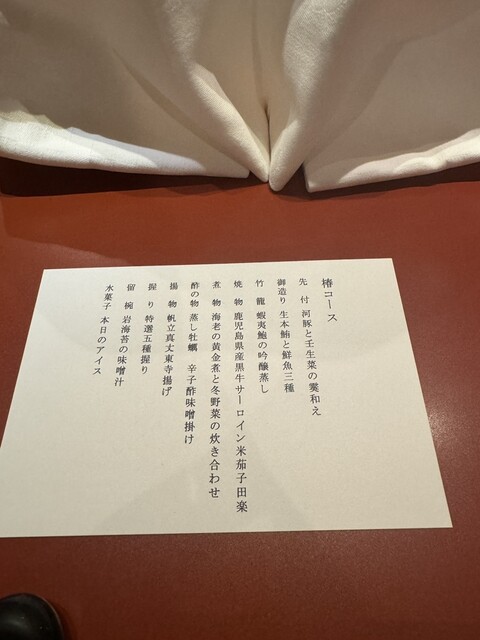 椿コース
先付 河豚と壬生菜の霙和え
御造り 生本鮪と鮮魚三種
竹籠 蝦夷鮑の吟醸蒸し
焼物 鹿児島県産黒牛サーロイン米茄子田楽
煮物 海老の黄金煮と冬野菜の炊き合わせ
酢の物 蒸し牡蠣 辛子酢味噌掛け
揚物 帆立真丈東寺揚げ
握り 特選五種握り
留椀 岩海苔の味噌汁
水菓子 本日のアイス